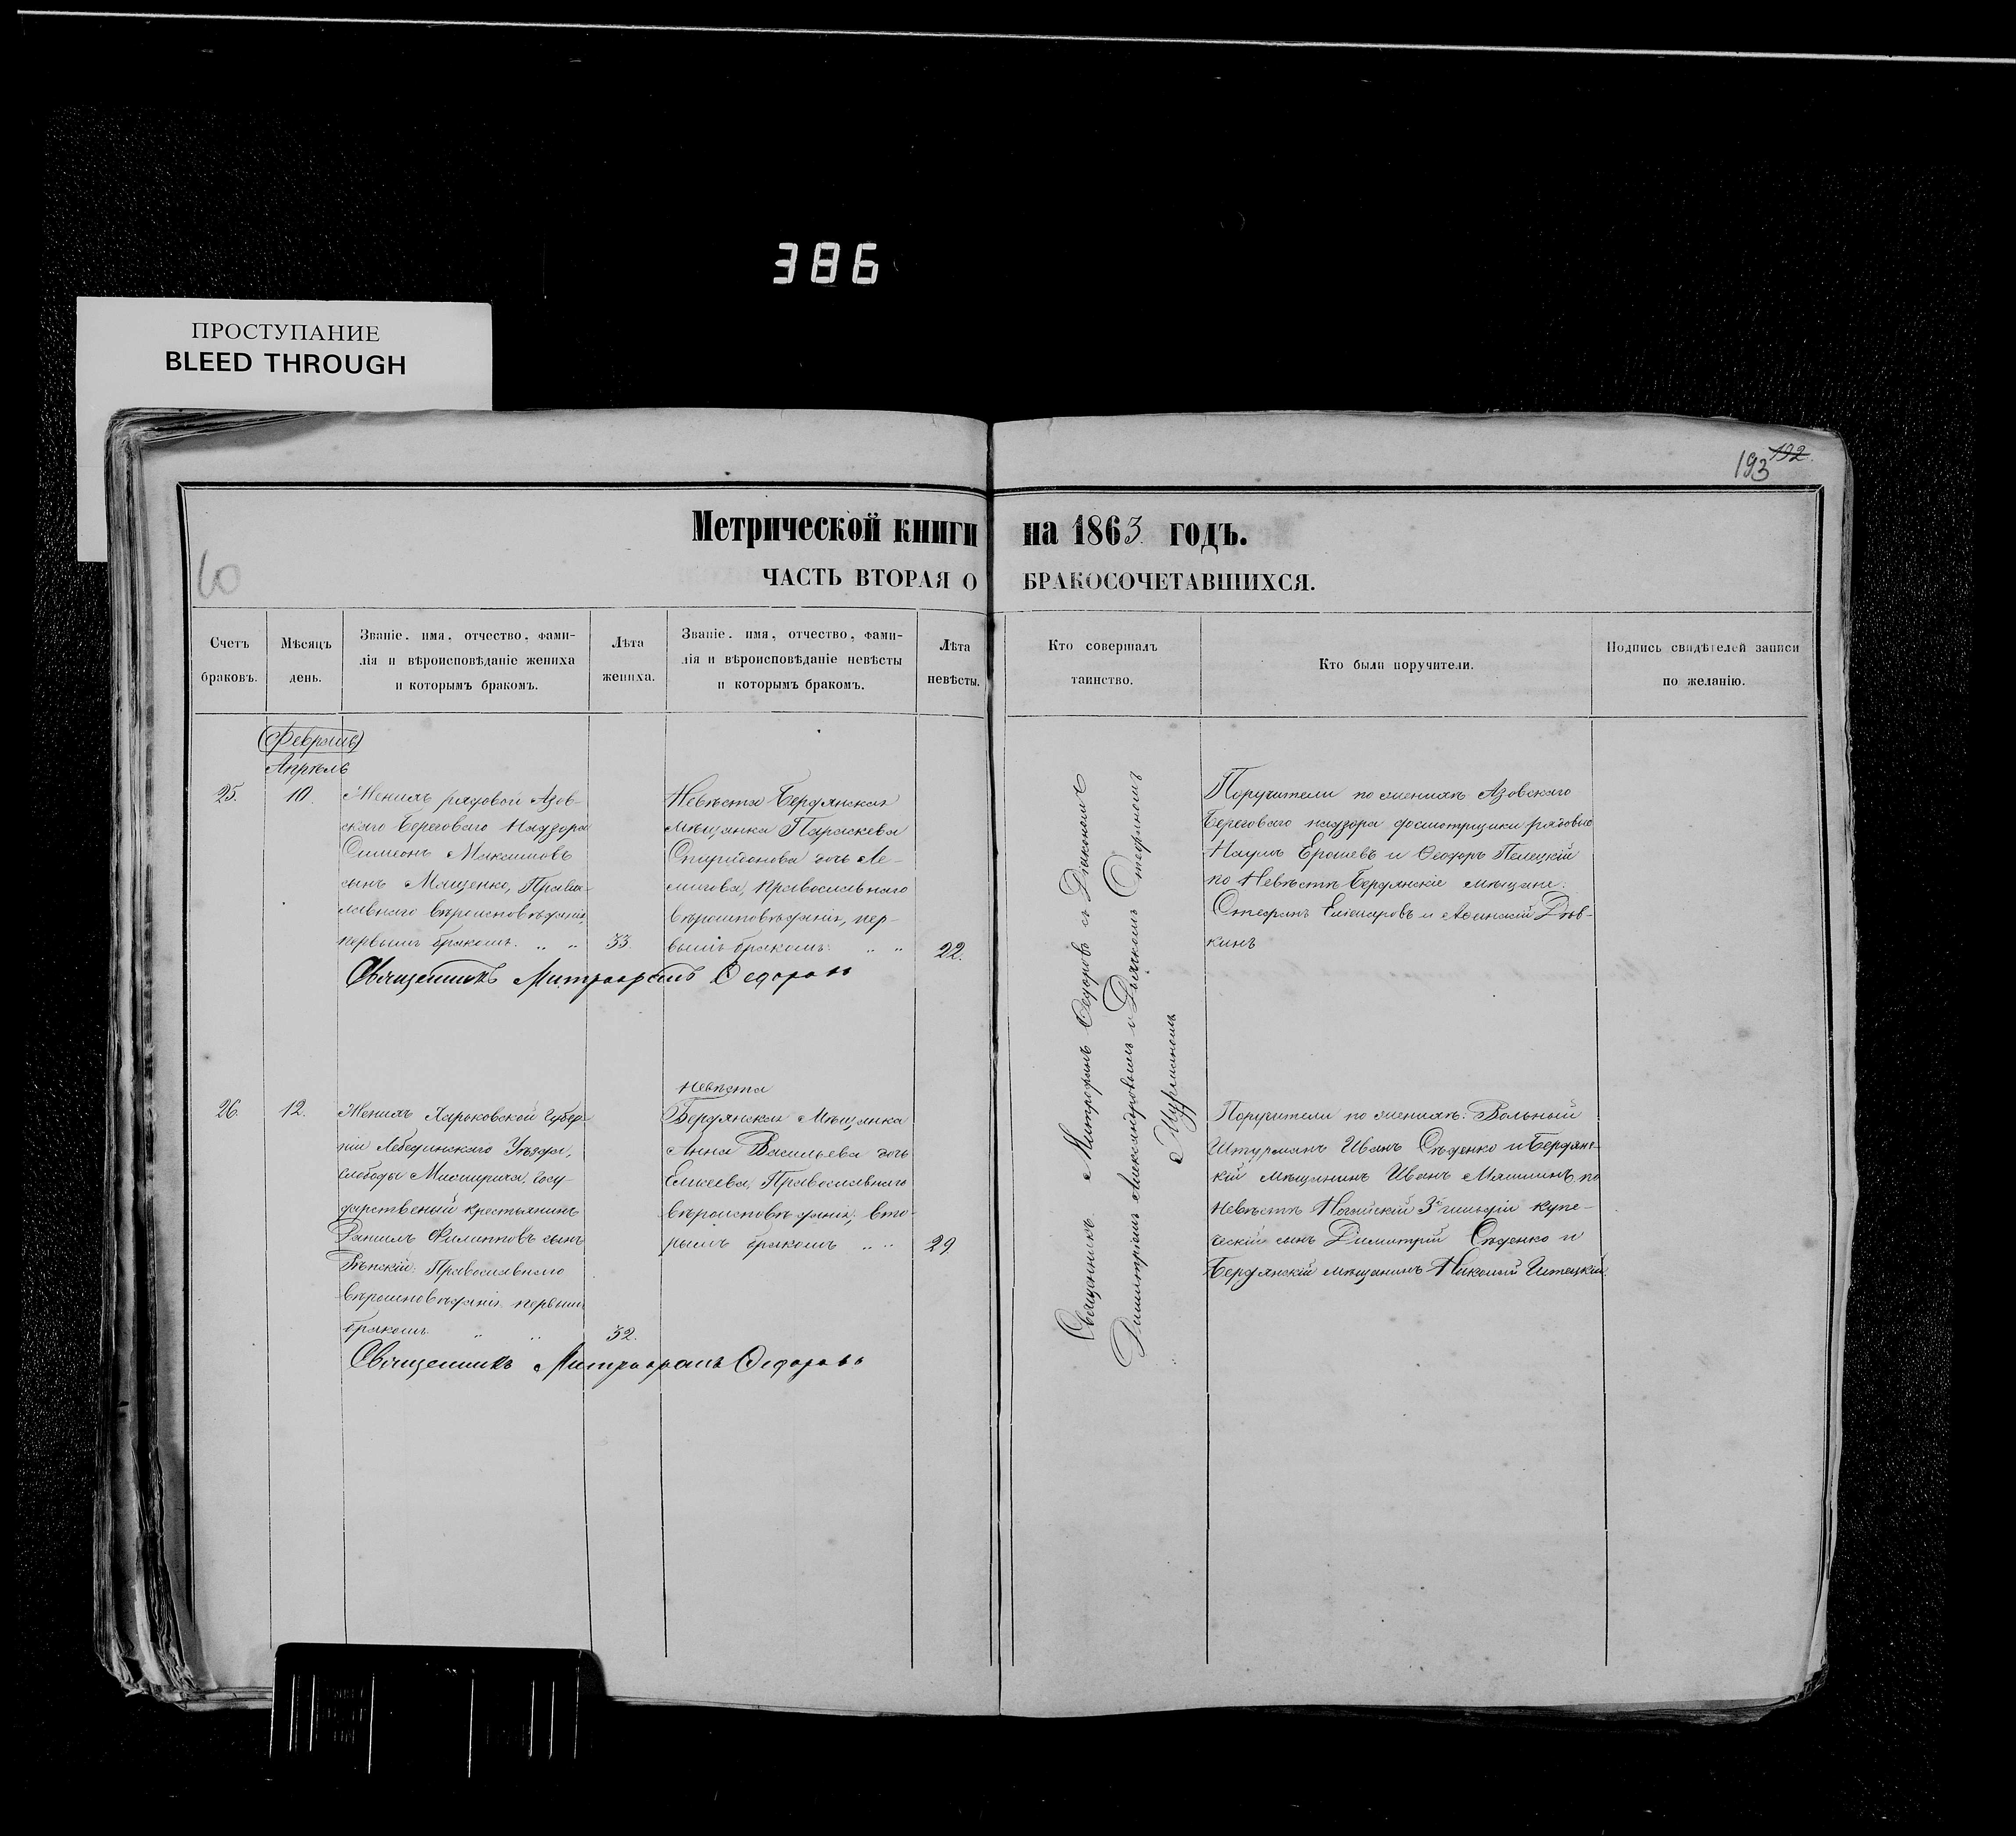 386
ПРОСТУПАНИЕ
BLEED THROUGH
193 192.
Метрической книги на 1863 годъ.
60
ЧАСТЬ ВТОРАЯ О БРАКОСОЧЕТАВШИХСЯ.
Счетъ браковъ.
Мѣсяцъ день.
Званіе, имя, отчество, фами-
лія и вѣроисповѣданіе жениха
и которымъ бракомъ.
Лѣта жениха.
Званіе, имя, отчество, фами-
лія и вѣроисповѣданіе невѣсты
и которымъ бракомъ.
Лѣта невѣсты.
Кто совершалъ
таинство.
Кто были поручители.
Подпись свидѣтелей записи
по желанію.
(Февраль)
Апрѣль
25. 10.
Женихъ рядовой Азов-
скаго Береговаго Надзора
Симеонъ Максимовъ
сынъ Мащенко, Правос-
лавнаго вѣроисповѣданія,
первымъ бракомъ. „ „ 33.
Невѣста Бердянская
мѣщанка Параскева
Спиридонова дочь
православнаго
вѣроисповѣданія, пер-
вымъ бракомъ. „ „ 22.
Священникъ Митрофанъ Ѳедоровъ
Священникъ Митрофанъ Ѳедоровъ съ Діакономъ
Димитріемъ Александровымъ и Дьячкомъ Стефаномъ
Поручители по женихѣ Азовскаго
Береговаго надзора досмотрщики рядовые
Наумъ Ерошевъ и Ѳеодоръ Пелецкій
по Невѣстѣ Бердянскіе мѣщане:
Стефанъ и
26. 12.
Женихъ Харьковской Губер-
ніи Лебединскаго Уѣзда,
Слободы Межирича, Госу-
дарственый крестьянинъ
Даніилъ Филипповъ сынъ
Рѣпскій, Православнаго
вѣроисповѣданія первымъ
бракомъ „ „ 32.
Невѣста
Бердянская Мѣщанка
Анна Васильева дочь
Елисеева, Православнаго
вѣроисповѣданія, вто-
рымъ бракомъ „ „ 29
Священникъ Митрофанъ Ѳедоровъ
Поручители по женихѣ: Вольный
Штурманъ Иванъ Сѣденко и Бердянс-
кій мѣщанинъ Иванъ Мамлинъ, по
Невѣстѣ Ногайскій 3й гильдіи купе-
ческій сынъ Димитрій Сѣденко и
Бердянскій мѣщанинъ Николай